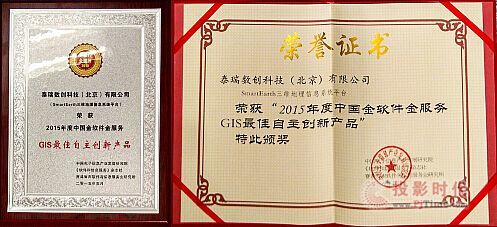 泰瑞数创科技（北京）有限公司
（SmartEarth三维地理信息系统平台）
荣 获
2015年度中国金软件金服务
GIS最佳自主创新产品
中国电子信息产业发展研究院
《软件和信息服务》杂志社
二〇一五年五月
荣誉证书
泰瑞数创科技（北京）有限公司
SmartEarth三维地理信息系统平台
荣获“2015年度中国金软件金服务
GIS最佳自主创新产品”
特此颁奖
投影时代